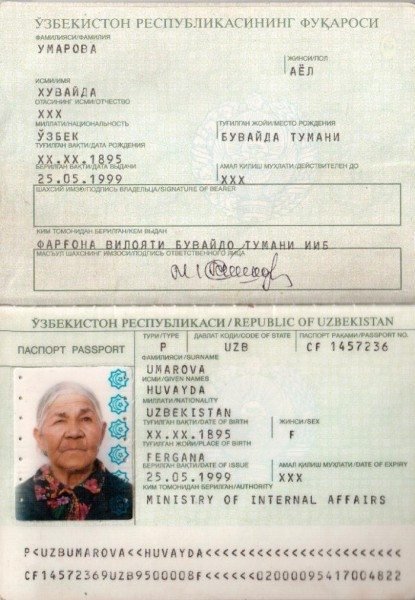 ЎЗБЕКИСТОН РЕСПУБЛИКАСИНИНГ ФУҚАРОСИ
ФАМИЛИЯСИ/ФАМИЛИЯ
УМАРОВА
ЖИНСИ/ПОЛ
АЁЛ
ИСМИ/ИМЯ
ХУВАЙДА
ОТАСИНИНГ ИСМИ/ОТЧЕСТВО
XXX
МИЛЛАТИ/НАЦИОНАЛЬНОСТЬ
ТУҒИЛГАН ЖОЙИ/МЕСТО РОЖДЕНИЯ
ЎЗБЕК
БУВАЙДА ТУМАНИ
ТУҒИЛГАН ВАҚТИ/ДАТА РОЖДЕНИЯ
XX.XX.1895
БЕРИЛГАН ВАҚТИ/ДАТА ВЫДАЧИ
АМАЛ ҚИЛИШ МУҲЛАТИ/ДЕЙСТВИТЕЛЕН ДО
25.05.1999
XXX
ШАХСИЙ ИМЗО/ПОДПИСЬ ВЛАДЕЛЬЦА/SIGNATURE OF BEARER
КИМ ТОМОНИДАН БЕРИЛГАН/КЕМ ВЫДАН
ФАРҒОНА ВИЛОЯТИ БУВАЙДО ТУМАНИ ИИБ
МАСЪУЛ ШАХСНИНГ ИМЗОСИ/ПОДПИСЬ ОТВЕТСТВЕННОГО ЛИЦА
ЎЗБЕКИСТОН РЕСПУБЛИКАСИ/REPUBLIC OF UZBEKISTAN
ПАСПОРТ PASSPORT
ТУРИ/TYPE
ДАВЛАТ КОДИ/CODE OF STATE
ПАСПОРТ РАҚАМИ/PASSPORT NO
P
UZB
CF 1457236
ФАМИЛИЯСИ/SURNAME
UMAROVA
ИСМИ/GIVEN NAMES
HUVAYDA
МИЛЛАТИ/NATIONALITY
UZBEKISTAN
ТУҒИЛГАН ВАҚТИ/DATE OF BIRTH
ЖИНСИ/SEX
XX.XX.1895
F
ТУҒИЛГАН ЖОЙИ/PLACE OF BIRTH
FERGANA
БЕРИЛГАН ВАҚТИ/DATE OF ISSUE
АМАЛ ҚИЛИШ МУҲЛАТИ/DATE OF EXPIRY
25.05.1999
XXX
КИМ ТОМОНИДАН БЕРИЛГАН/AUTHORITY
MINISTRY OF INTERNAL AFFAIRS
P<UZBUMAROVA<<HUVAYDA<<<<<<<<<<<<<<<<<<<<<<<
CF14572369UZB9500008F<<<<<<02000095417004822